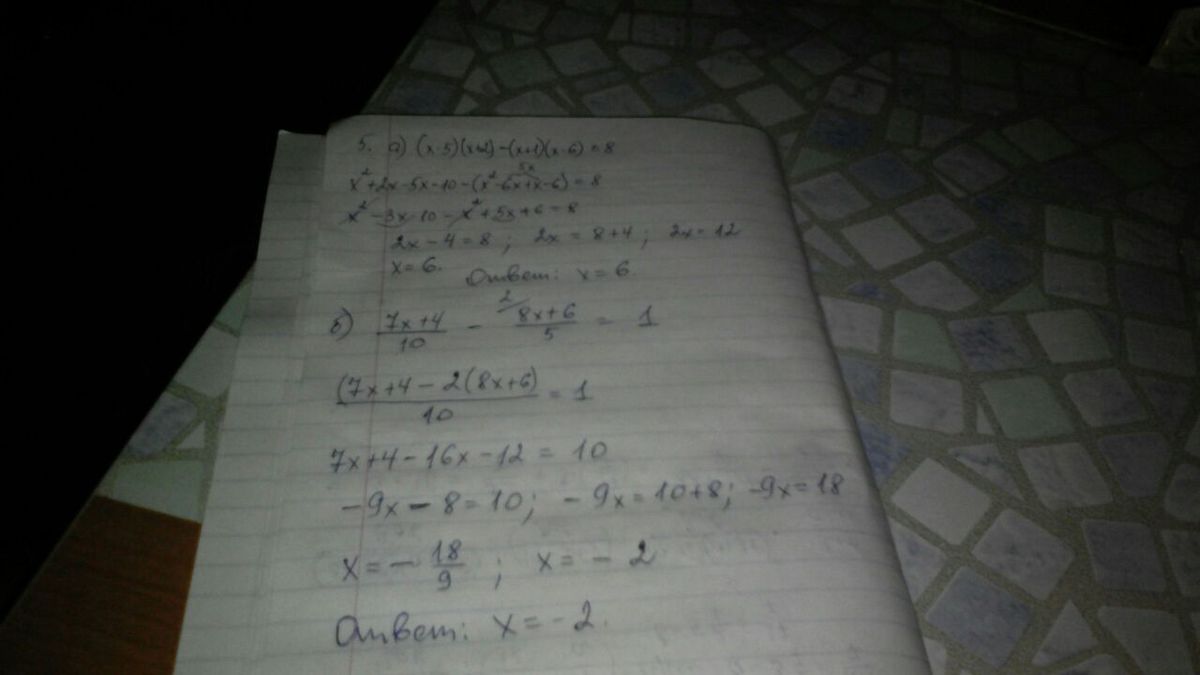 5. а) (x-5)(x+2)-(x+1)(x-6)=8
5x
x²+2x-5x-10-(x²-6x+x-6)=8
x²-3x-10-x²+5x+6=8
2x-4=8; 2x=8+4; 2x=12
x=6. Ответ: x=6.
б) (7x+4)/10 - ²/(8x+6)/5 = 1
(7x+4-2(8x+6)/10 = 1
7x+4-16x-12=10
-9x-8=10; -9x=10+8; -9x=18
x=-18/9; x=-2
Ответ: x=-2.